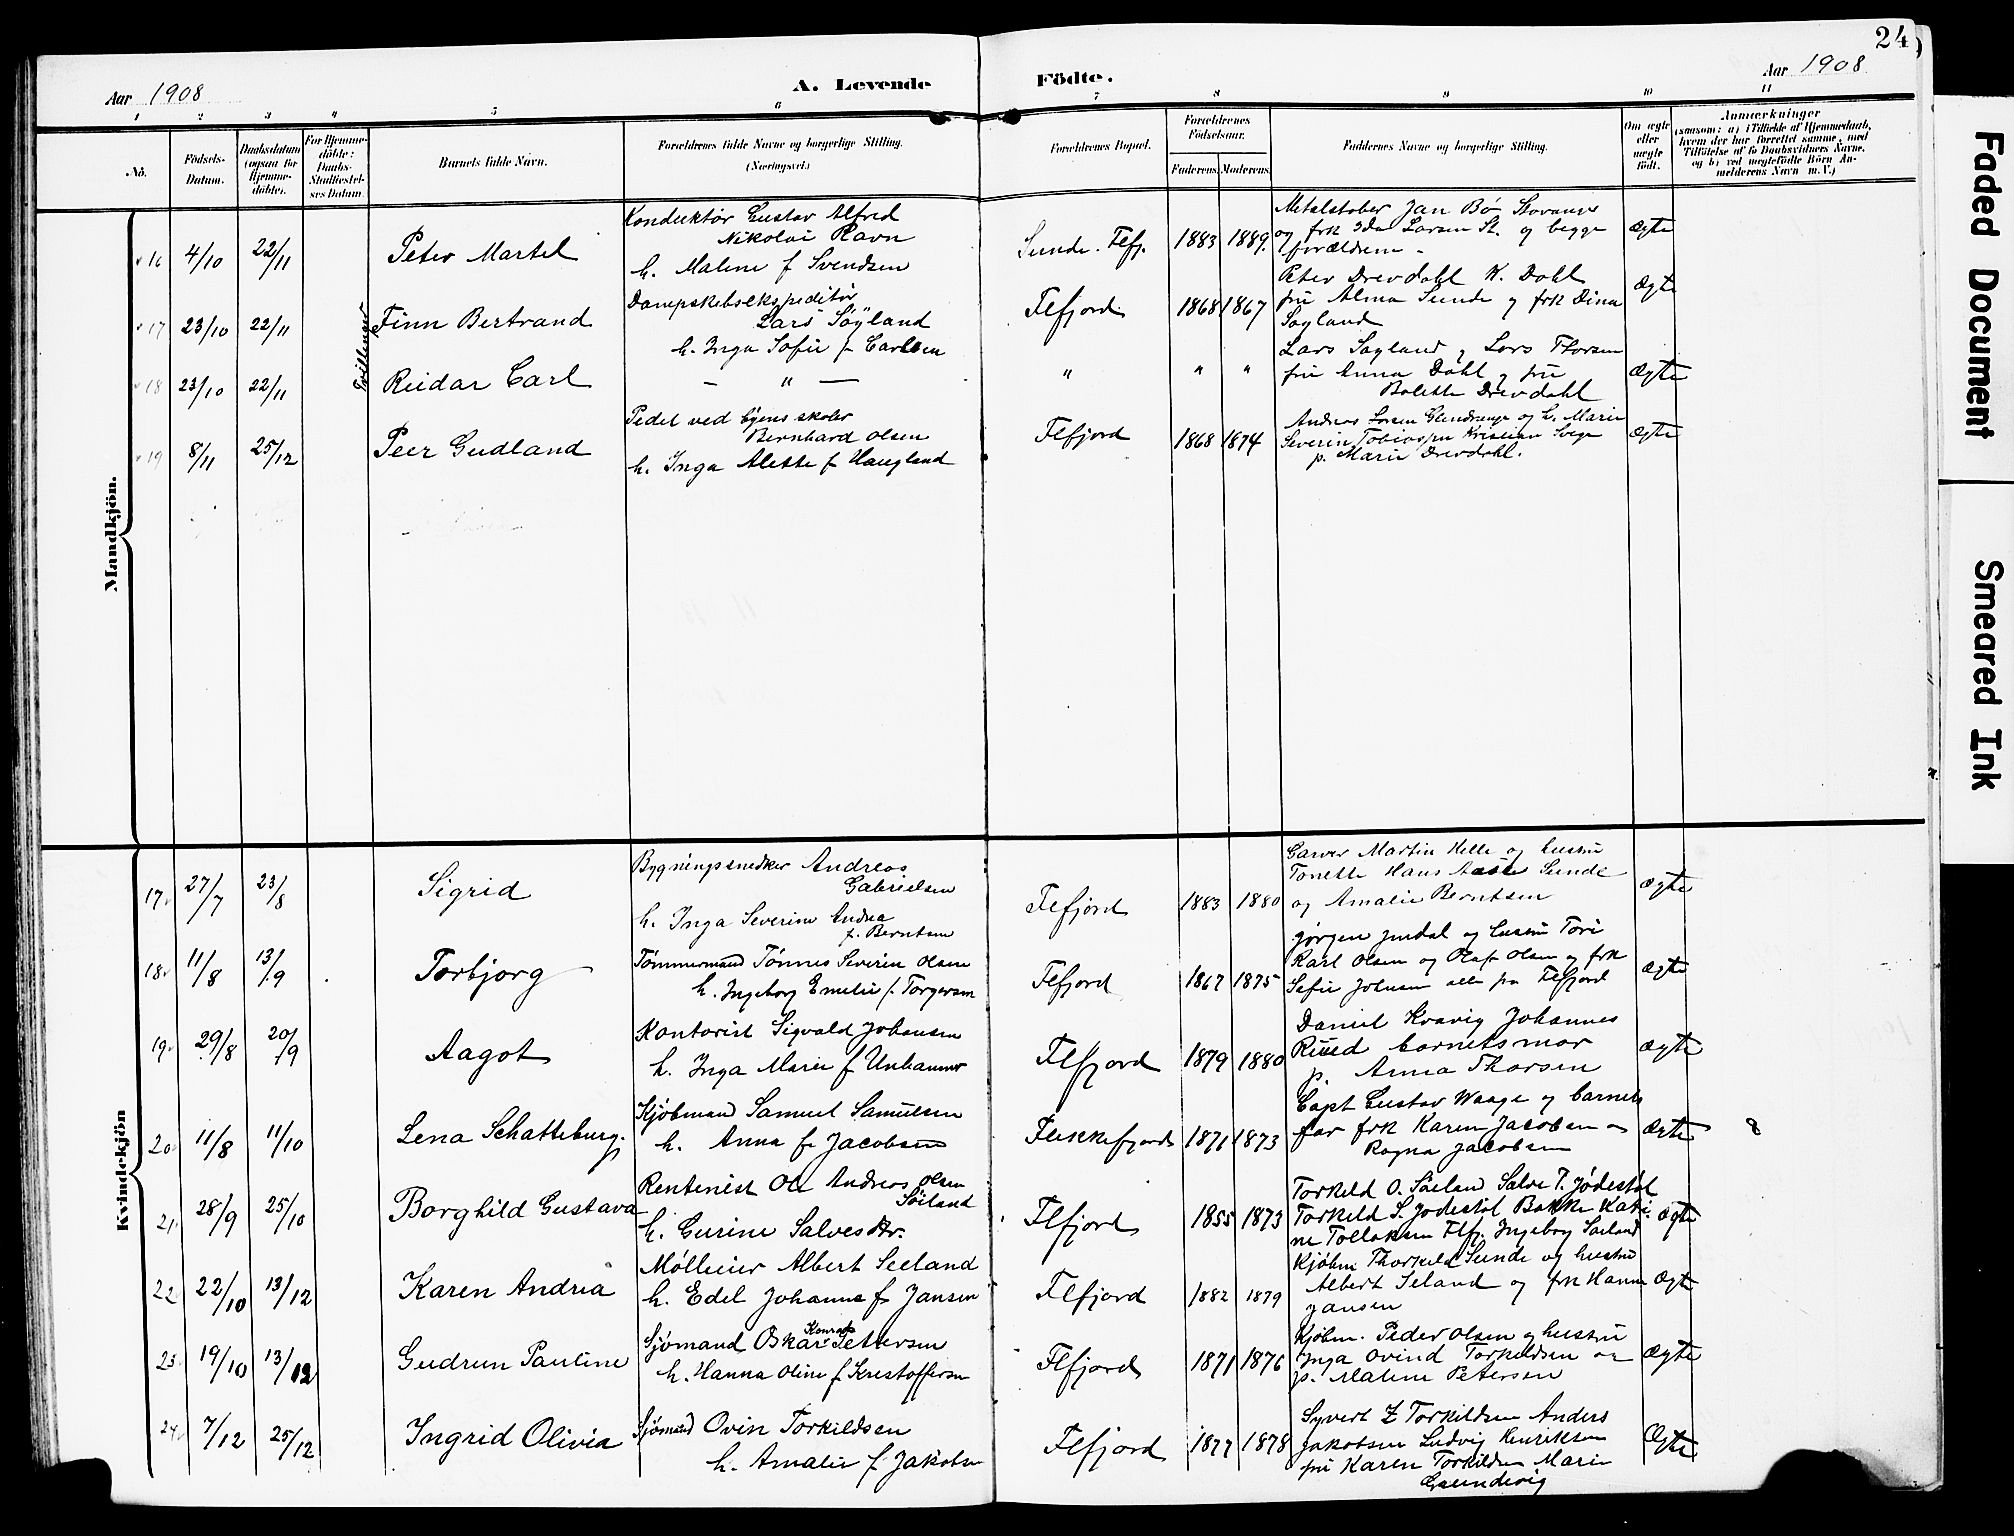 24
Aar 1908
A. Levende
Födte.
Aar 1908
1 2 3 4 5 6 7 8 9 10 11
No.
Födsels-Datum.
Daabsdatum (ogsaa for Hjemme-døbte).
For Hjemme-döbte: Daabs-Stadfæstel-ses Datum
Barnets fulde Navn.
Forældrenes fulde Navne og borgerlige Stilling. (Næringsvei.)
Forældrenes Bopæl.
Forældrenes Födselsaar.
Faderens. Moderens.
Faddernes Navne og borgerlige Stilling.
Om ægte eller uægte født.
Anmærkninger
(saasom: a) i Tilfælde af Hjemmedaab, hvem der har forrettet samme, med Tilföielse af to Daabsvidners Navne, og b) ved uægtefödte Börn An-melderens Navn m. V.)
Mandkjön.
16 4/10 22/11 Peter Martel
Konduktør Gustav Alfred
Nikolai Ravn
h. Malene f Svendsen
Sunde. Flfj. 1883 1889.
Metalstøber Jan Bø Stavanger
og frk Ida Larsen St. og begge
forældrene
Ægte
Tvillinger
17 23/10 22/11 Finn Bertrand
Dampskibsekspeditør
Lars Søyland
h. Inga Sofie f Carlsen
Flfjord 1868 1867
Peter Drevdahl K. Dahl
fru Alma Sunde og frk Dina
Søyland
Ægte
18 23/10 22/11 Reidar Carl
— " —
" " "
Lars Søyland og Lars Thorsen
fru Anna Dahl og fru
Bolette Drevdahl
Ægte
19 8/11 25/12 Peer Gudland
Pedel ved byens skoler
Bernhard Olsen
h. Inga Alette f Haugland
Flfjord 1868 1874
Andreas Larsen Glendrange og h. Marie
Severin Tobiassen Kristian Svege
p. Marie Drevdahl.
Ægte
Kvindekjön
17 27/7 23/8 Sigrid
Bygningssnedker Andreas
Gabrielsen
h. Inga Severine Andrea
f. Berntsen
Flfjord 1883 1880
Garver Martin Helle og hustru
Tonette Hans Aase Sunde
og Amalie Berntsen
ægte
18 11/8 13/9 Torbjorg
Tømmermand Tønnes Severin Olsen
h. Ingeborg Emelie f. Torgersen
Flfjord 1867 1875
Jørgen Jerdal og hustru Tori
Karl Olsen og Olaf Olsen og frk
Sofie Johnsen alle fra Flfjord
Ægte
19 29/8 20/9 Aagot
Kontorist Sigvald Johansen
h. Inga Marie f Unhammer
Flfjord 1879 1880
Daniel Kvavig Johannes
Rued barnets mor
p. Anna Thorsen
Ægte
20 11/8 11/10 Lena Schatteburg.
Kjøbmand Samuel Samuelsen
h. Anna f Jacobsen
Flekkefjord 1871 1873
Capt Gustav Waage og barnets
far frk Karen Jacobsen og
Ragna Jacobsen
Ægte 8
21 28/9 25/10 Borghild Gustava
Rentenist Ole Andreas Olsen
Søiland
h. Gurine Salvesdtr.
Flfjord 1855 1873
Torkild O. Søeland Salve T. Jødestøl
Torkeld S. Jødestøl Bakke Katri-
ne Tollaksen Flfj. Ingeborg Søeland
Ægte
22 22/10 13/12 Karen Andrea
Ølleier Albert Seeland
h. Edel Johanne f Jansen
Flfjord 1882 1879
Kjøbm Thorkild Sunde og hustru
Albert Seland og frk Hanne
Jansen
Ægte
23 19/10 13/12 Gudrun Pauline
Sjømand Oskar Konrad Pettersen
h. Hanna Oline f Krestoffersen
Flfjord 1871 1876
Kjøbm. Peder Olsen og hustru
Inga Ovind Torkildsen og
p. Malene Petersen
Ægte
24 7/12 25/12 Ingrid Olivia
Sjømand Ovin Torkildsen
h. Amalie f Jakobsen
Flfjord 1877 1878
Syvert Z Torkildsen Anders
Jakobsen Ludvig Henriksen
fru Karen Torkildsen Marie
Grundevig
Ægte
Faded Document
Smeared Ink